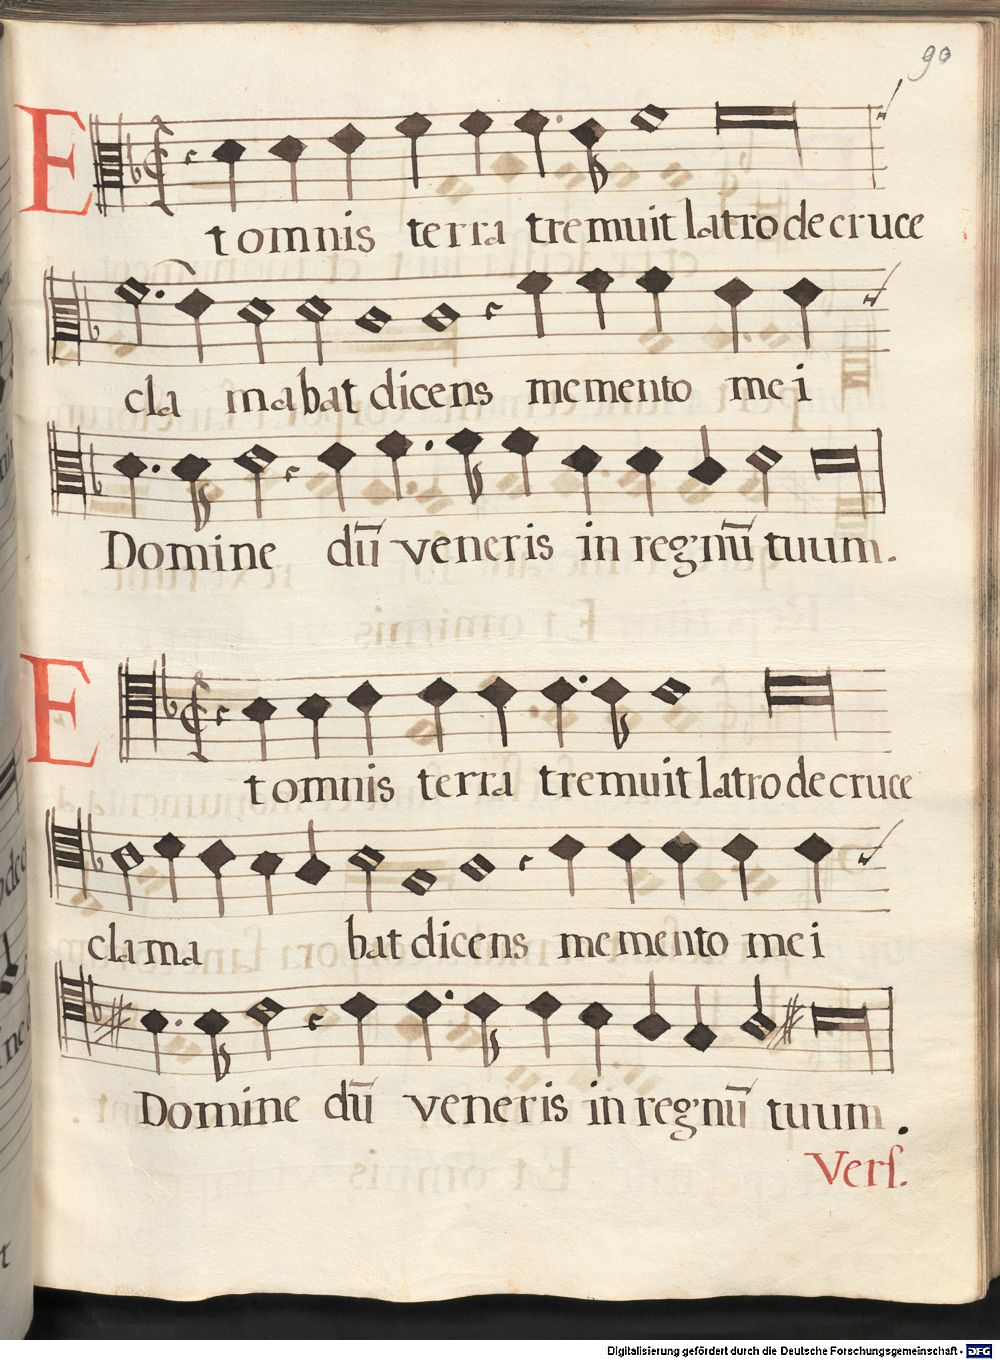 90
Et omnis terra tremuit latro de cruce
cla mabat dicens memento mei
Domine dũ veneris in regnũ tuum.
Et omnis terra tremuit latro de cruce
clama bat dicens memento mei
Domine dũ veneris in regnũ tuum.
Verſ.
Digitalisierung gefördert durch die Deutsche Forschungsgemeinschaft - DFG